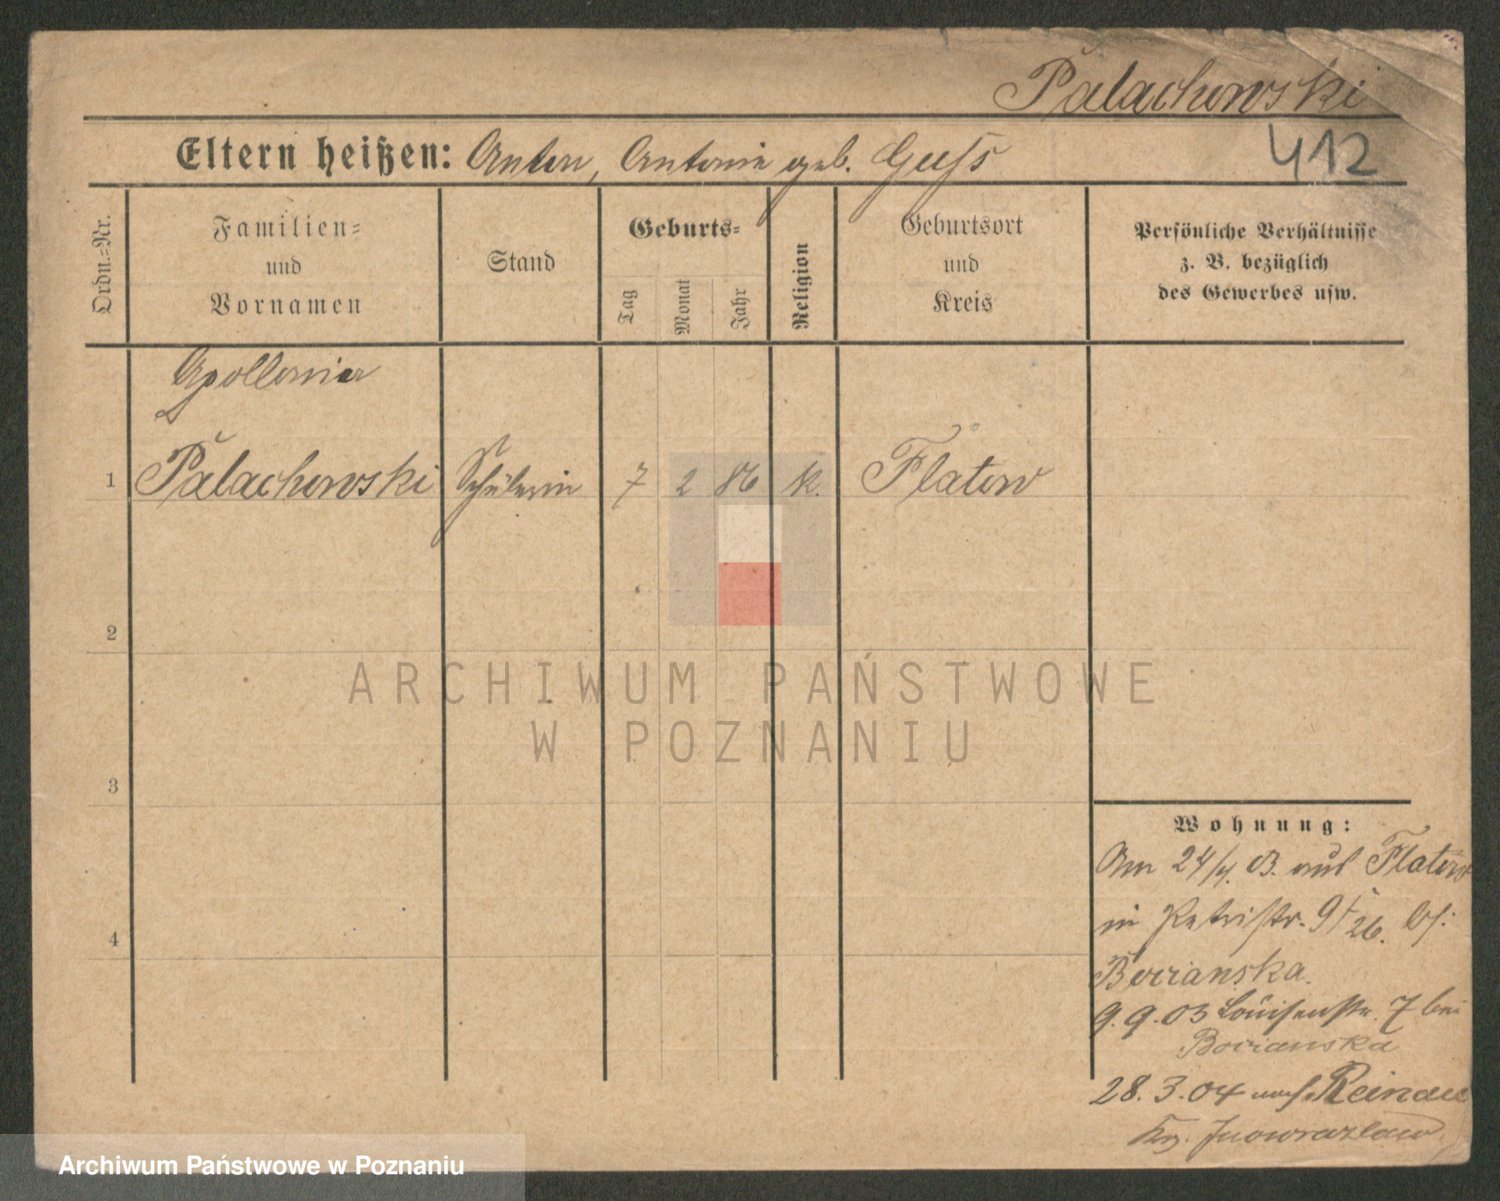 Palachowski
412
Eltern heißen: Anton, Antonie geb. Guss
Ordn.=Nr.
Familien=
und
Vornamen
Stand
Geburts=
Tag
Monat
Jahr
Religion
Geburtsort
und
Kreis
Persönliche Verhältnisse
z. B. bezüglich
des Gewerbes usw.
Apollonia
1 Palachowski Schülerin 7 2 86 k. Flatow
2
3
4
ARCHIWUM PAŃSTWOWE
W POZNANIU
Wohnung:
Am 24/4. 03. aus Flatow
in Petristr. 9 I 26. bei
Bocianska.
9.9.03 Louisenstr. 7 bei
Bocianska
28.3.04 nach Reinau
Krs. Inowrazlaw
Archiwum Państwowe w Poznaniu